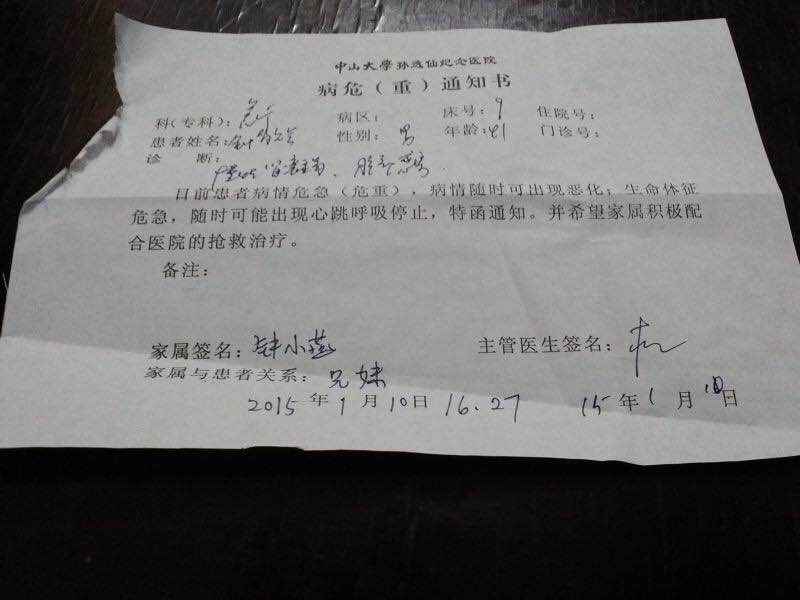 中山大学孙逸仙纪念医院
病危（重）通知书
科(专科)：急 病区： 床号：9 住院号：
患者姓名：钟 性别：男 年龄：41 门诊号：
诊 断：
目前患者病情危急（危重），病情随时可出现恶化；生命体征
危急，随时可能出现心跳呼吸停止，特函通知。并希望家属积极配
合医院的抢救治疗。
备注：
家属签名：钟小燕 主管医生签名：
家属与患者关系：兄妹
2015年1月10日 16.27 15年1月10日